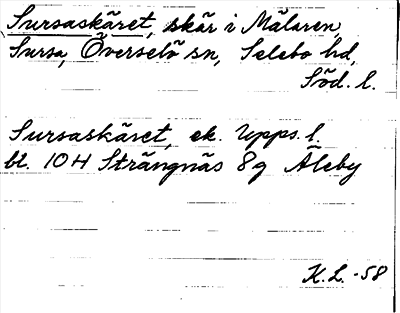 Sursaskäret, skär i Mälaren,
Sursa, Överselö sn, Selebo hd,
Söd. l.
Sursaskäret, ek. Upps. l.
bl. 10H Strängnäs 8g Äleby
K.L. -58